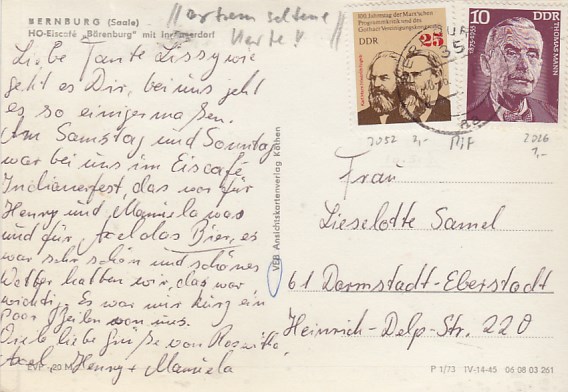 BERNBURG (Saale)
HO-Eiscafé „Bärenburg" mit Indianerdorf
// extrem seltene
Karte!
Liebe Tante Lissy wie
geht es Dir, bei uns geht
es so einigermaßen.
Am Samstag und Sonntag
war bei uns im Eiscafé
Indianerfest, das war für
Henry und Manuela was
und für Axel das Bier, es
war sehr schön und schönes
Wetter hatten wir, das war
wichtig. Es war nur kurz ein
paar Zeilen von uns.
Viele liebe Grüße von Roswitha,
Axel Henry + Manuela
EVP -,20 M
VEB Ansichtskartenverlag Köthen
100. Jahrestag der Marx'schen
Programmkritik und des
Gothaer Vereinigungskongresses
DDR 25
10 DDR
THOMAS MANN
1875-1955
2052 2,-
MiF
2026
1,-
Frau
Lieselotte Samel
61 Darmstadt-Eberstadt
Heinrich-Delp-Str. 220
P 1/73 IV-14-45 06 08 03 261